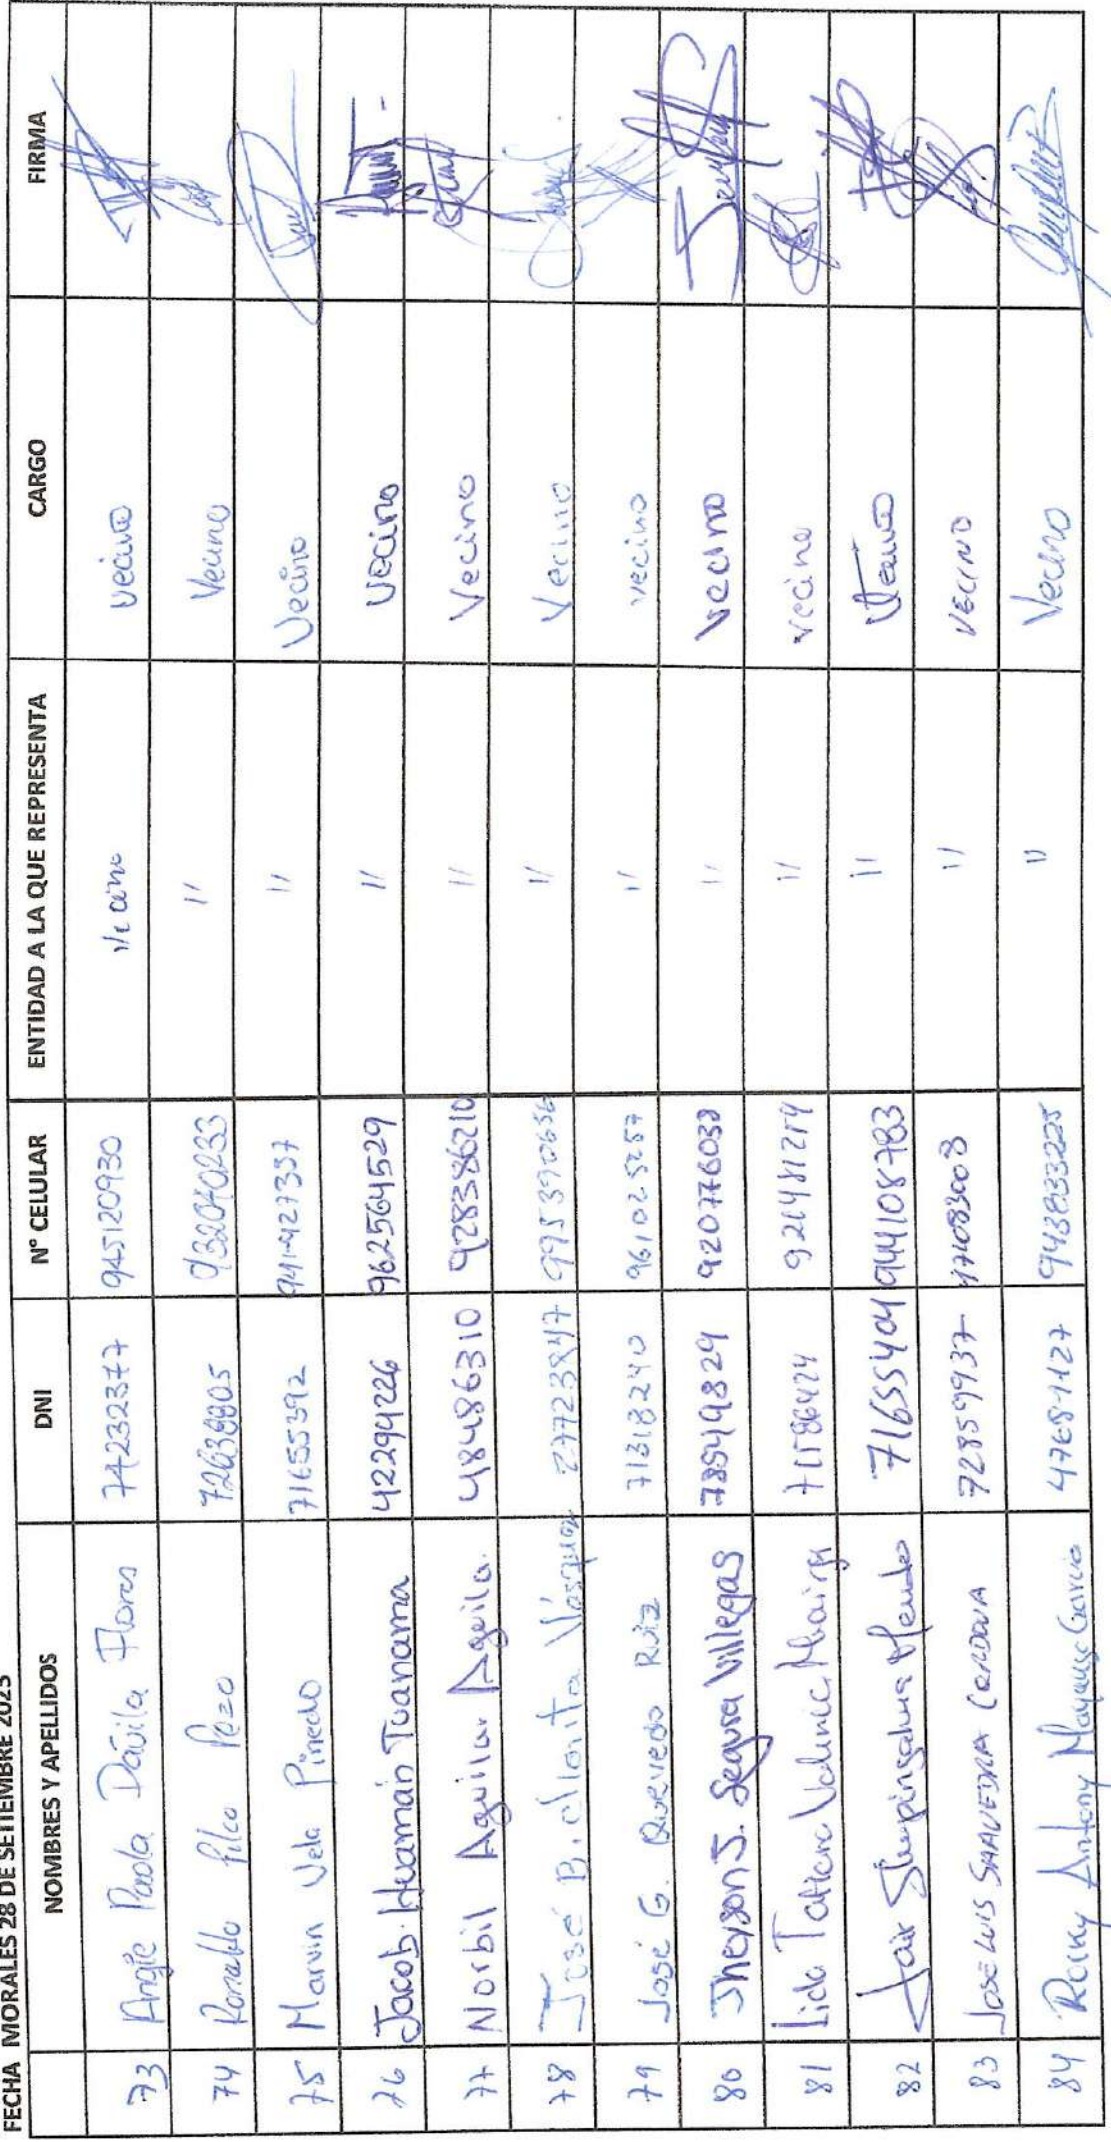 FECHA MORALES 28 DE SETIEMBRE 2023
NOMBRES Y APELLIDOS DNI N° CELULAR ENTIDAD A LA QUE REPRESENTA CARGO FIRMA
73 Angie Paola Dávila Flores 74232377 945120930 vecino vecino
74 Ronaldo Pilco Pezo 72638805 932040233 " Vecino
75 Marvin Vela Pinedo 71655392 941427337 " Vecino
76 Jacob Huamán Tuanama 42294226 962564529 " Vecino
77 Norbil Aguilar Aguila. 48486310 928386210 " Vecino
78 José B. clorito Vásquez 27723847 995390656 " Vecino
79 José G. Quevedo Ruiz 71318240 961025257 " vecino
80 Jheyson J. Segura Villegas 78549829 920776038 " vecino
81 Lida Tatiana Valencia 926481219 " vecino
82 Jair 71655404 944108783 " Vecino
83 JOSÉ LUIS SAAVEDRA CORDOVA 72859937 " VECINO
84 Rocky Antony 943833225 " Vecino